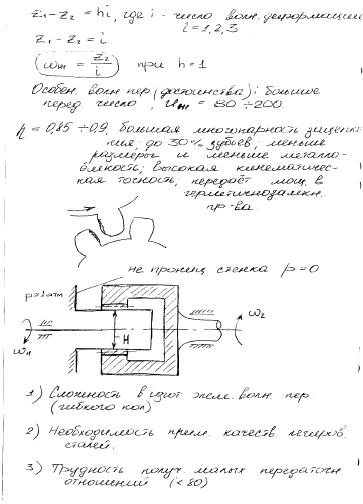 z₁-z₂ = hi, где i - число волн. деформации
i = 1, 2, 3
z₁-z₂ = i
при h = 1
Особен. волн. пер. (достоинства): большие
перед. число, = 80 ÷ 200.
η = 0,85 ÷ 0,9; большая многопарность зацепле
ния, до 30% зубьев; меньше
размеры и меньше металло-
ёмкость; высокая кинематичес-
кая точность; передаёт мощ. в
герметичнозамкн.
пр-ва.
не пронец стенка p = 0
p=1атм
ω₂
H
1) Сложность в изгот. элем. волн. пер.
(гибкого кол)
2) Необходимость прим. качеств. легиров.
сталей.
3) Трудность получ. малых передаточн.
отношений (< 80)